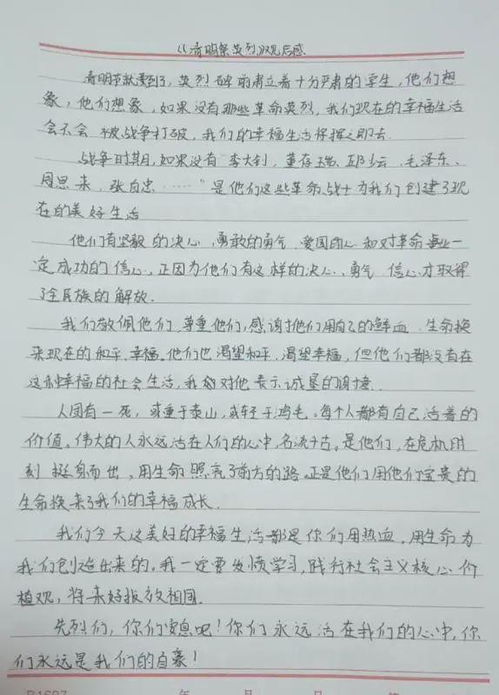 《清明祭英烈》观后感
清明节就要到了，英烈碑前肃立着十分严肃的学生，他们想
象，他们想象，如果没有那些革命英烈，我们现在的幸福生活
会不会被战争打破，我们的幸福生活将挥之即去
战争时期，如果没有"李大钊，董存瑞、邱少云、毛泽东、
周恩来，张自忠……"是他们这些革命战士为我们创建了现
在的美好生活
他们有坚毅的决心，勇敢的勇气，爱国的心和对革命事业一
定成功的信心，正因为他们有这样的决心、勇气信心才取得
了全民族的解放．
我们敬佩他们尊重他们，感谢他们用自己的鲜血生命换
来现在的和平、幸福。他们也渴望和平，渴望幸福，但他们都没有在
这种幸福的社会生活，我们对他表示诚恳的
人固有一死，或重于泰山，或轻于鸿毛。每个人都有自己活着的
价值。伟大的人永远活在人们的心中，名流千古。是他们，在危机时
刻挺身而出，用生命照亮了前方的路。正是他们用他们宝贵的
生命换来了我们的幸福成长．
我们今天这美好的幸福生活都是你们用热血，用生命为
我们创造出来的。我一定要发愤学习，践行社会主义核心价
植观，将来好报效祖国．
先烈们，你们安息吧！你们永远活在我们的心中，你
们永远是我们的自豪！